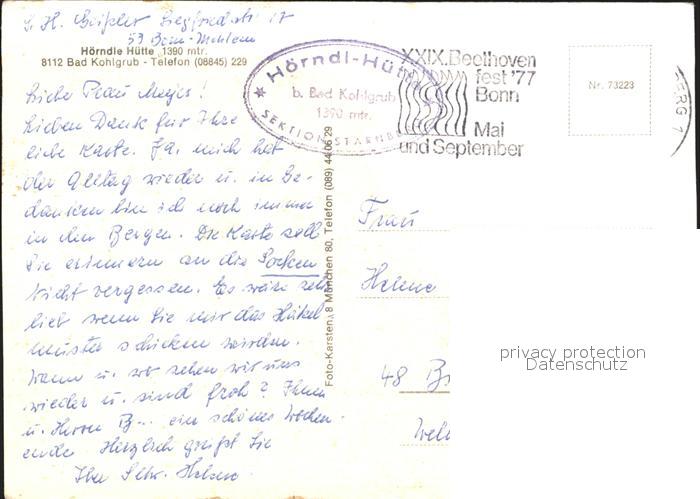 53 Bonn-Mehlem
Hörndle Hütte 1390 mtr.
8112 Bad Kohlgrub - Telefon (08845) 229
Hörndl-Hütte
b. Bad Kohlgrub
1390 mtr.
SEKTION STARNBE
XXIX. Beethoven
fest '77
Bonn
Mai
und September
Nr. 73223
BERG 1
Liebe Frau
Lieben Dank für Ihre
liebe Karte. Ja, mich hat
der Alltag wieder u. in Ge-
danken bin ich noch immer
in den Bergen. Die Karte soll
Sie erinnern an die Socken
nicht vergessen. Es wäre sehr
lieb wenn Sie mir das Häkel
muster schicken würden.
Wann u. wo sehen wir uns
wieder u. sind froh? Ihnen
u. Herrn B... ein schönes Wochen-
ende Herzlich grüßt Sie
Ihre Schw. Helene
Foto-Karsten, 8 München 80, Telefon (089) 44 06 29
Frau
Helene
48
privacy protection
Datenschutz